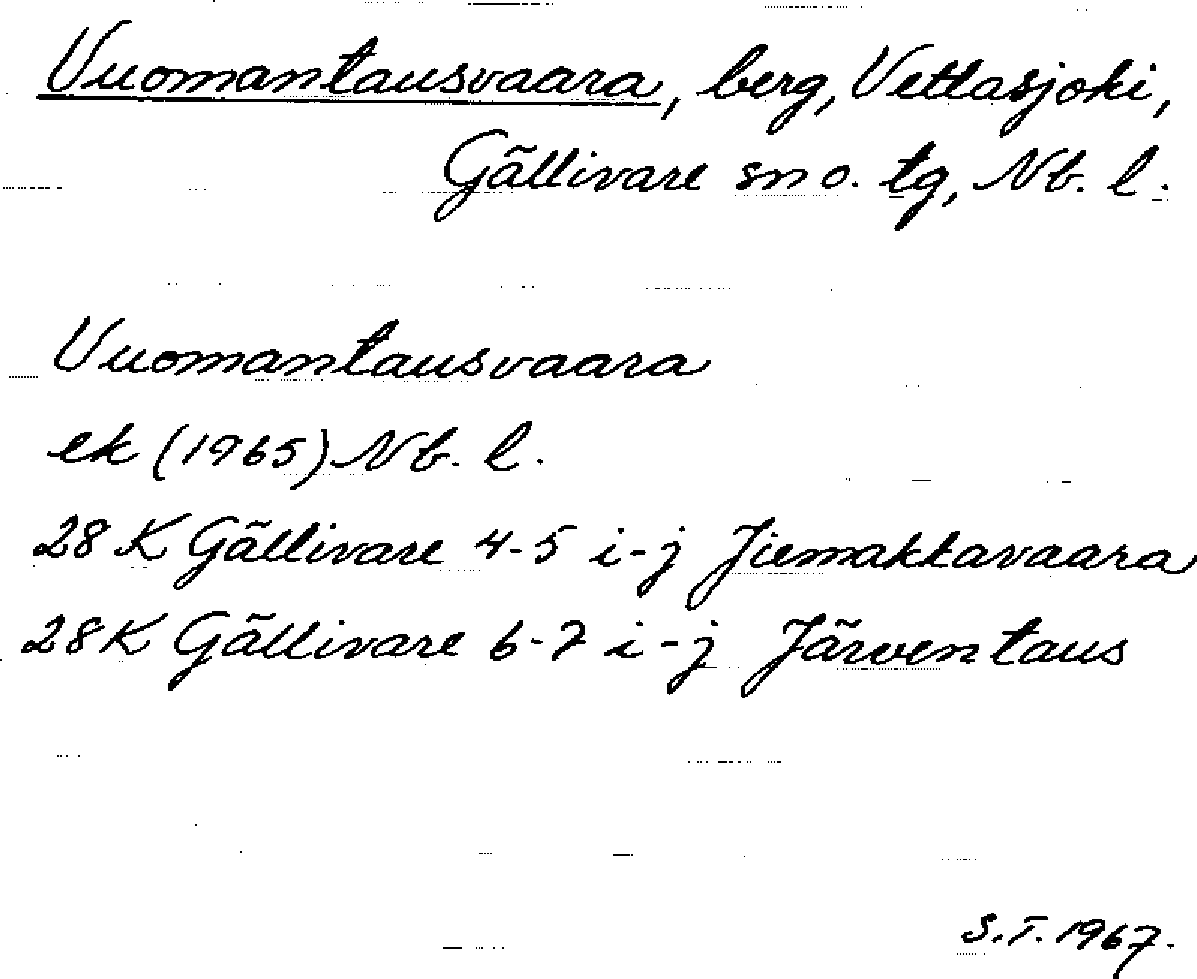 Vuomantausvaara, berg, Vettasjoki,
Gällivare sn o. tg, Nb. l.
Vuomantausvaara
ek (1965) Nb. l.
28 K Gällivare 4-5 i-j Jiemaktavaara
28K Gällivare 6-7 i-j Järventaus
S.T. 1967.